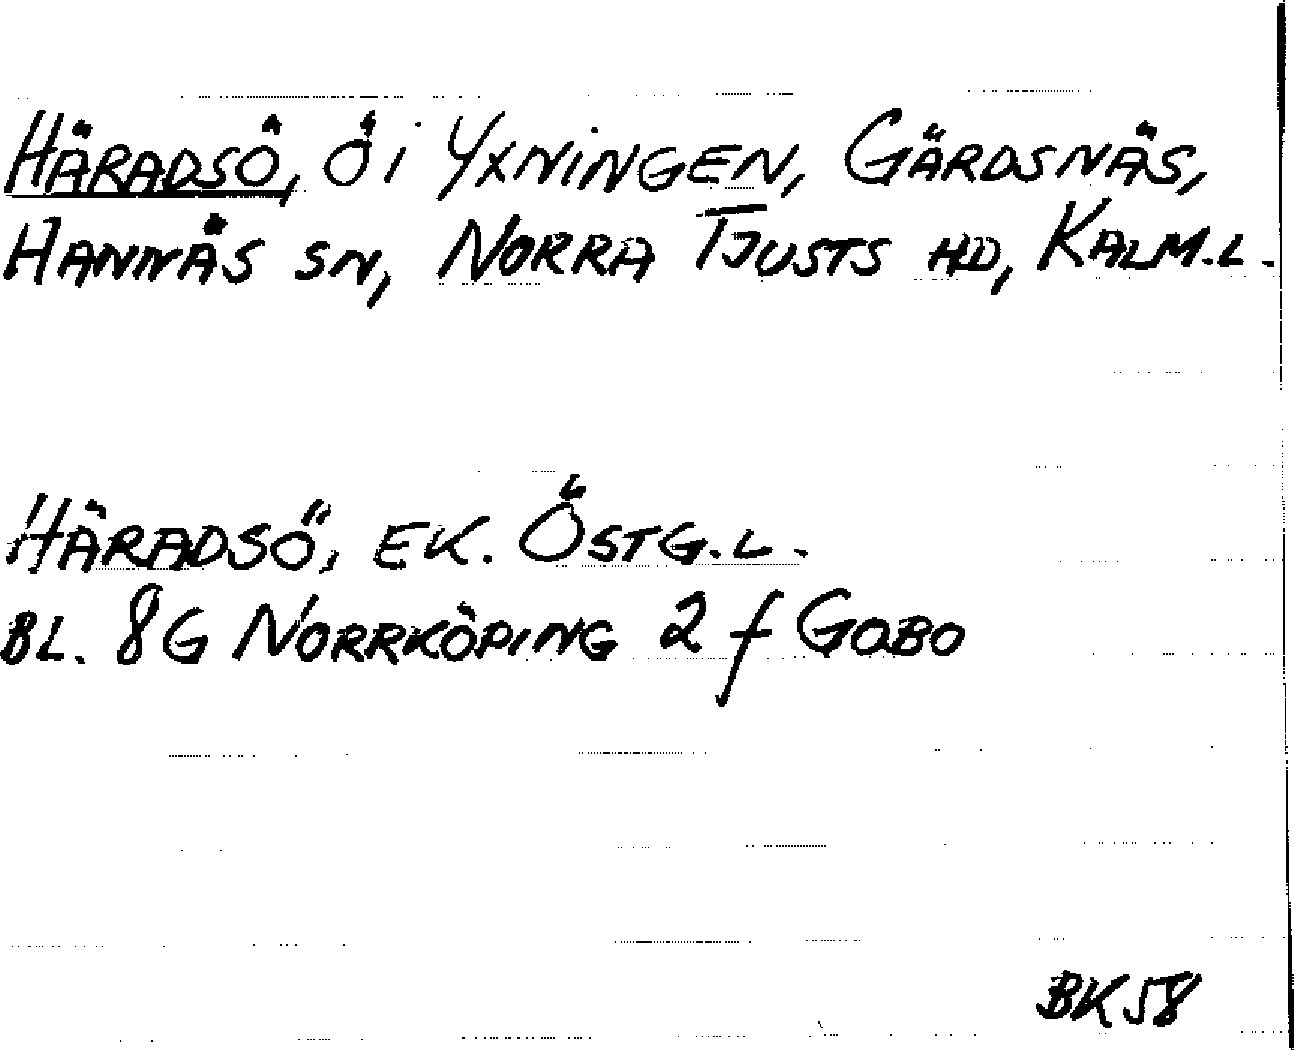 HÄRADSÖ, Ö i YXNINGEN, GÄRDSNÄS,
HANNÄS SN, NORRA TJUSTS HD, KALM.L.
HÄRADSÖ, EK. ÖSTG.L.
BL. 8G NORRKÖPING 2 f GOBO
BK58